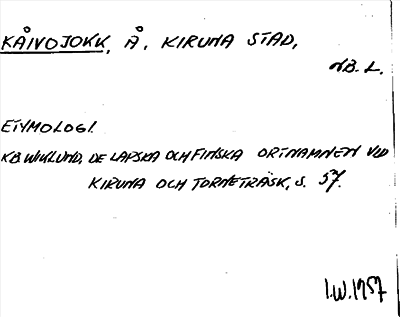 KÅIVOJOKK, Å, KIRUNA STAD,
NB. L.
ETYMOLOGI.
KB WIKLUND, DE LAPSKA OCH FINSKA ORTNAMNEN VID
KIRUNA OCH TORNETRÄSK, S. 57.
I.W. 1957